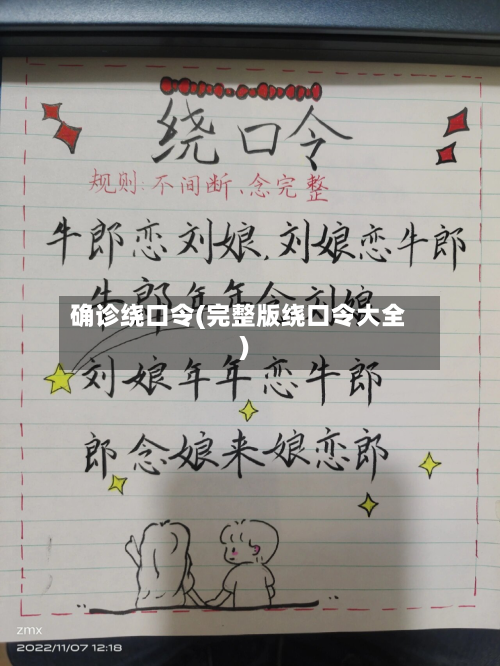 绕口令
规则:不间断,念完整
牛郎恋刘娘,刘娘恋牛郎
牛郎年年念刘娘
确诊绕口令(完整版绕口令大全
)
刘娘年年恋牛郎
郎念娘来娘恋郎
zmx
2022/11/07 12:18